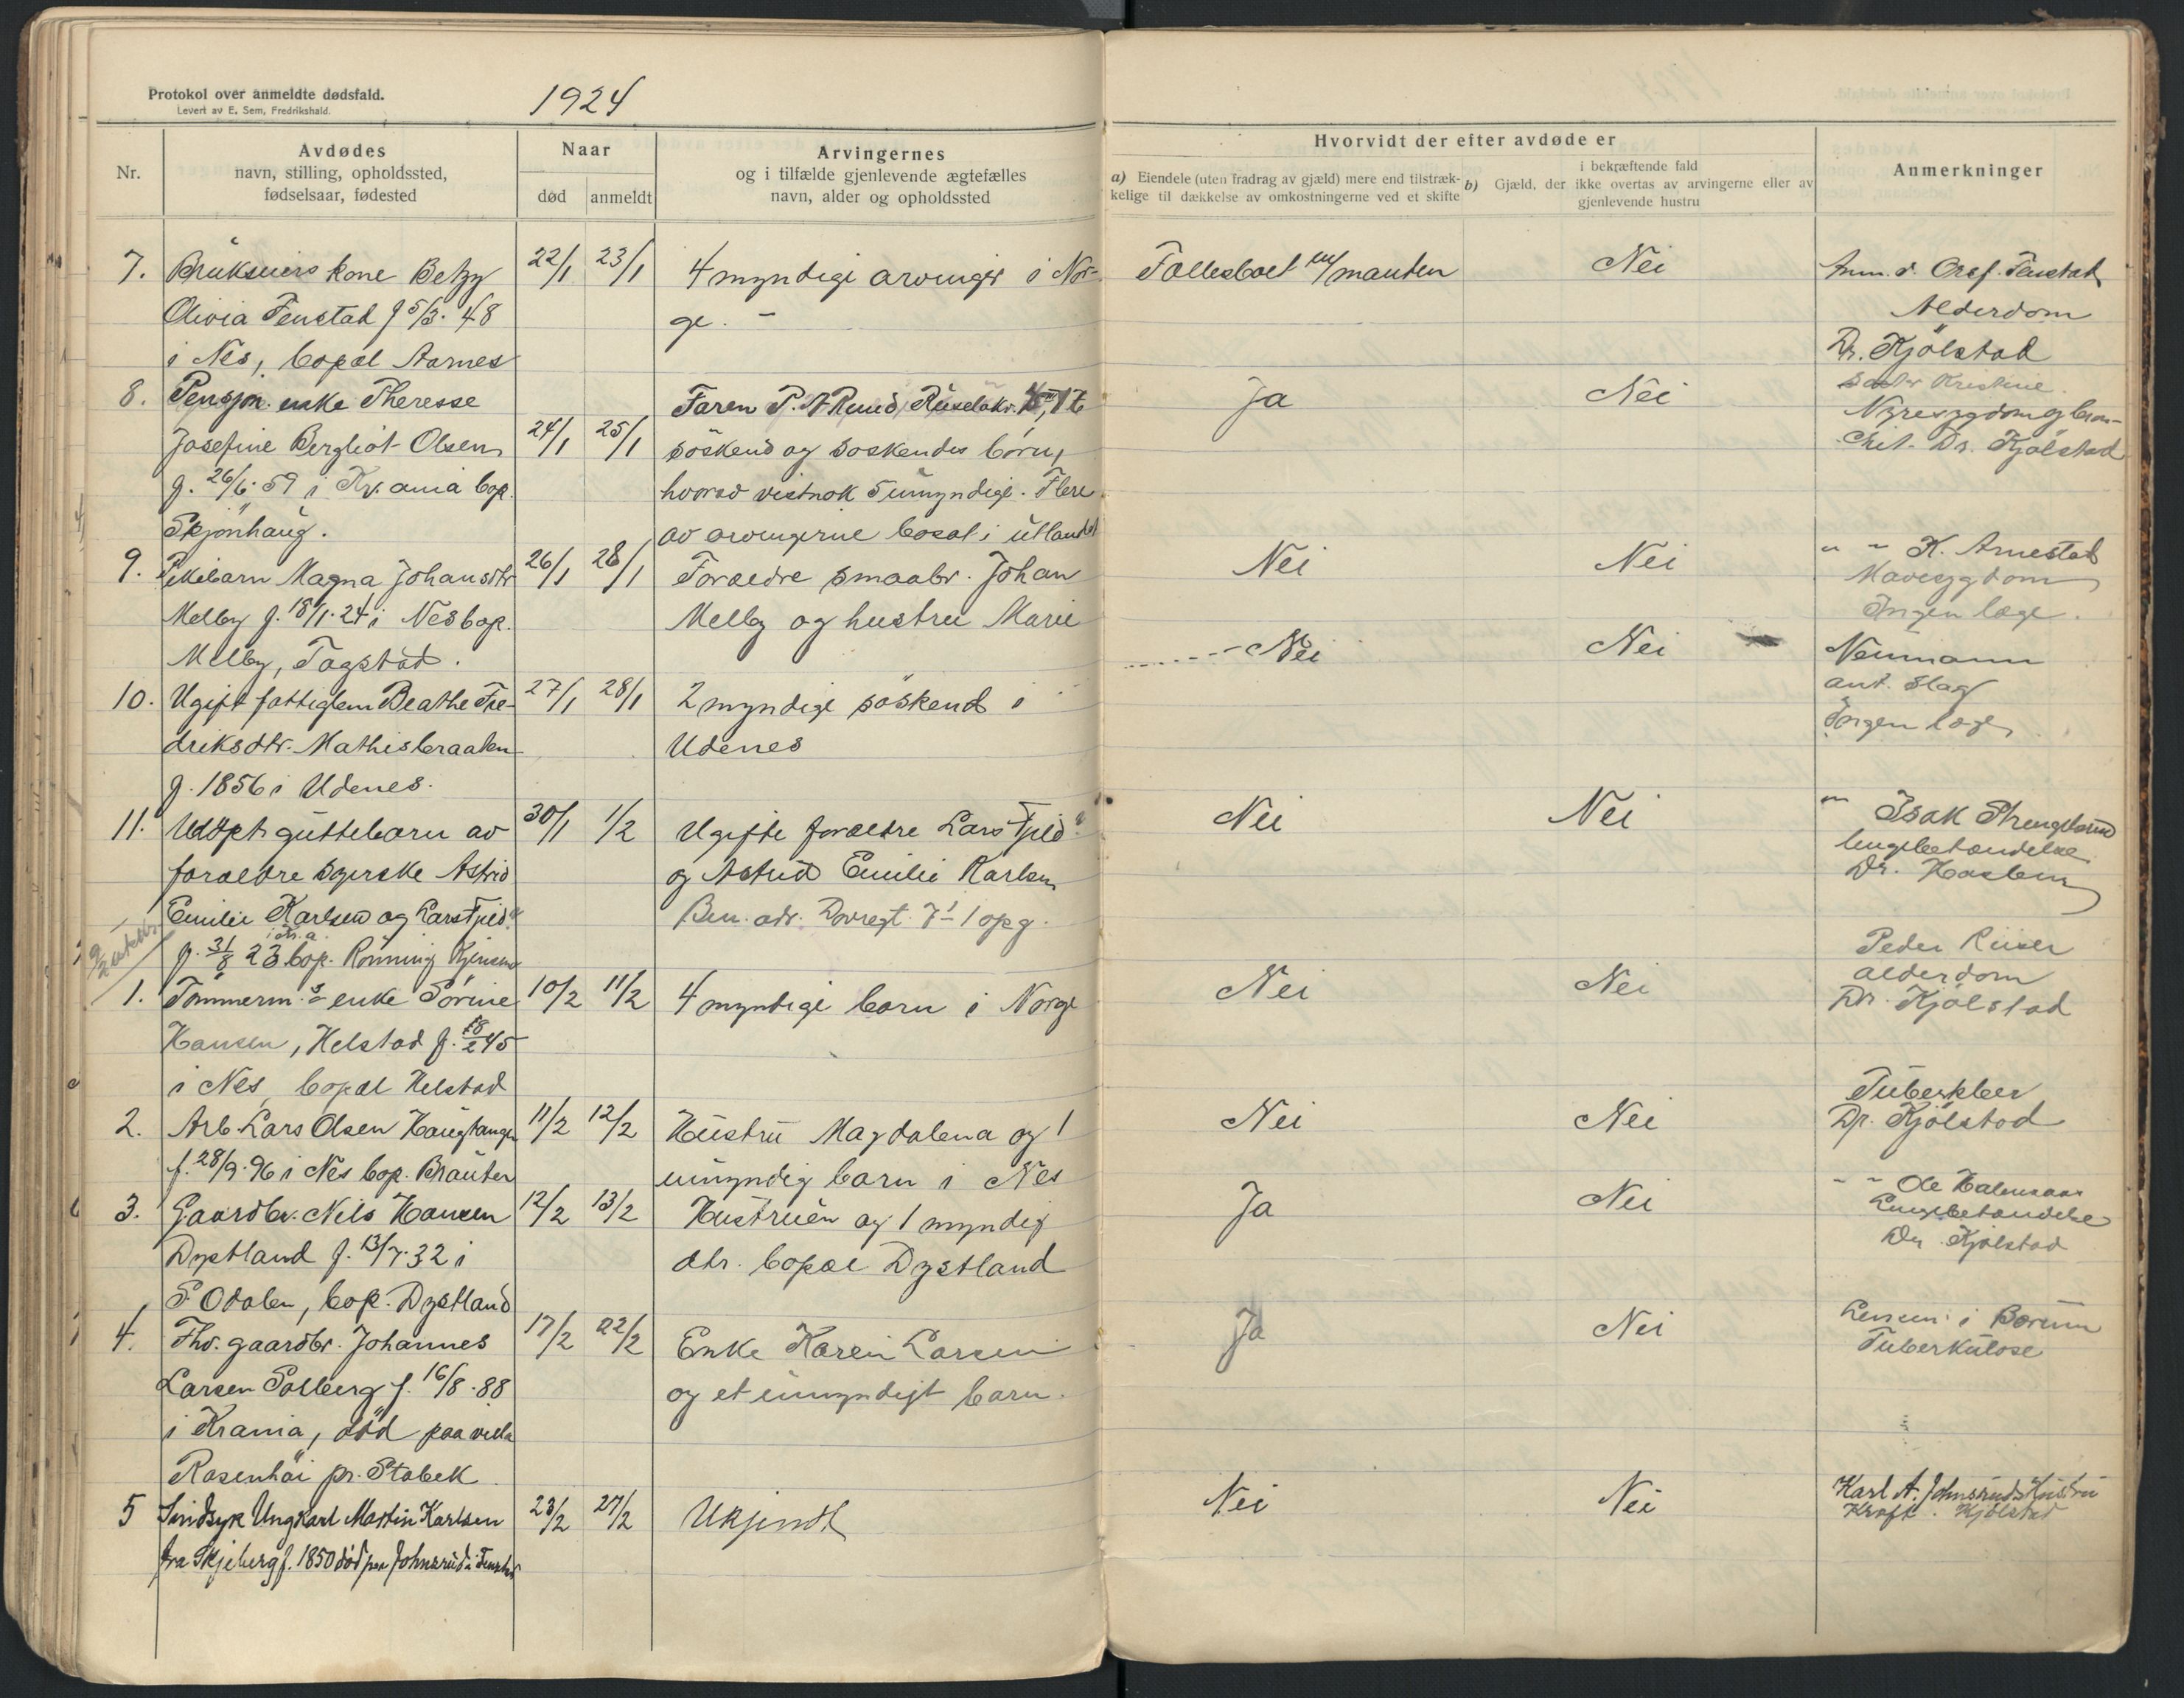 Protokol over anmeldte dødsfald.
Levert av E. Sem, Fredrikshald.
1924
Nr.
Avdødes
navn, stilling, opholdssted,
fødselsaar, fødested
Naar
død
anmeldt
Arvingernes
og i tilfælde gjenlevende ægtefælles
navn, alder og opholdssted
Hvorvidt der efter avdøde er
a) Eiendele (uten fradrag av gjæld) mere end tilstræk-
kelige til dækkelse av omkostningerne ved et skifte
i bekræftende fald
b) Gjæld, der ikke overtas av arvingerne eller av
gjenlevende hustru
Anmerkninger
7. Brukseiers kone Betzy
Olivia Fenstad f 5/3. 48
i Nes, bopæl Aarnes
22/1 23/1
4 myndige arvinger i Nor-
ge. -
Fællesboet m/manden
Nei
Anm. d. Fenstad
Alderdom
Dr. Kjølstad
8. Pensjon. enke Theresse
Josefine Bergliot Olsen
f. 26/6. 59 i Kr.ania bop.
Skjønhaug.
24/1 25/1
Faren P. A Ruud, Ruseløkv.
søskend og søskendes børn,
hvorav vistnok 5 umyndige. Flere
av arvingerne bosat i utlandet
Ja
Nei
Kristine
Nyresygdom og bron-
chit. Dr. Kjølstad
9. Pikebarn Magna Johansdtr
Melby f. 18/1. 24 i Nes bop.
Melby, Fagstad.
26/1 28/1
Forældre smaabr. Johan
Melby og hustru Marie
Nei
Nei
" " K. Arnestad
Mavesygdom
Ingen læge.
10. Ugift fattiglem Beathe Fre-
driksdtr. Mathisbraaten
f. 1856 i Udenes.
27/1 28/1
2 myndige søskend i
Udenes
Nei
Nei
Neumann
ant. slag
Ingen læge
11. Udøpt guttebarn av
forældre syerske Astrid
Emilie Karlsen og Lars Fjeld
i Kr.a.
f. 31/8 23 bop. Rønning
30/1 1/2
Ugifte forældre Lars Fjeld
og Astrid Emilie Karlsen
adr. Dovregt. 7 - 1 opg.
Nei
Nei
" Isak
lungebetændelse
Dr.
1. Tømmerm.s enke Sørine
Hansen, Helstad f. 18/2 45
i Nes, bopæl Helstad
10/2 11/2
4 myndige barn i Norge
Nei
Nei
Peder
alderdom
Dr. Kjølstad
2. Arb. Lars Olsen Haugtangen
f. 28/9. 96 i Nes bop. Brauter
11/2 12/2
Hustru Magdalena og 1
umyndig barn i Nes
Nei
Nei
Tuberkler
Dr. Kjølstad
3. Gaardbr. Nils Hansen
Dystland f. 13/7. 32 i
S. Odalen, bop. Dystland
12/2 13/2
Hustruen og 1 myndig
dtr. bopæl Dystland
Ja
Nei
" " Ole
Lungebetændelse
Dr. Kjølstad
4. Fhv. gaardbr. Johannes
Larsen Solberg f. 16/8. 88
i Krania, død paa villa
Rosenhøi pr. Stabek
17/2 22/2
Enke Karen Larsen
og et umyndigt barn.
Ja
Nei
Lensm. i Bærum
Tuberkulose
5 Sindsyk Ungkarl Martin Karlsen
fra Skjeberg f. 1850 død paa Johnsrud i Fenstad
23/2 27/2
Ukjendt
Nei
Nei
Karl A. Johnsruds Hustru
Kræft. Kjølstad